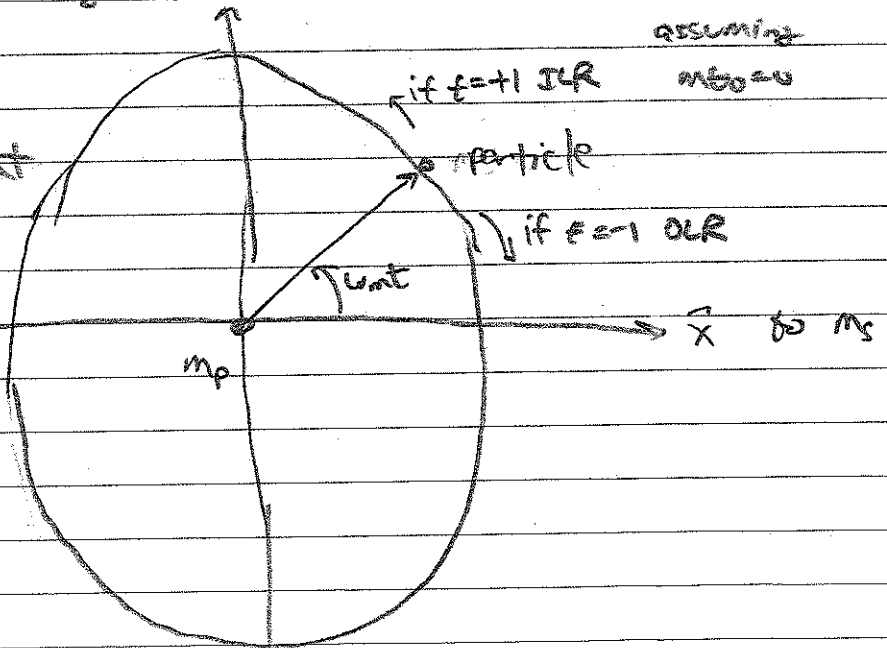 assuming
if ε=+1 ILR
mε₀=0
particle
if ε=-1 OLR
ωmt
x̂ to ms
mp